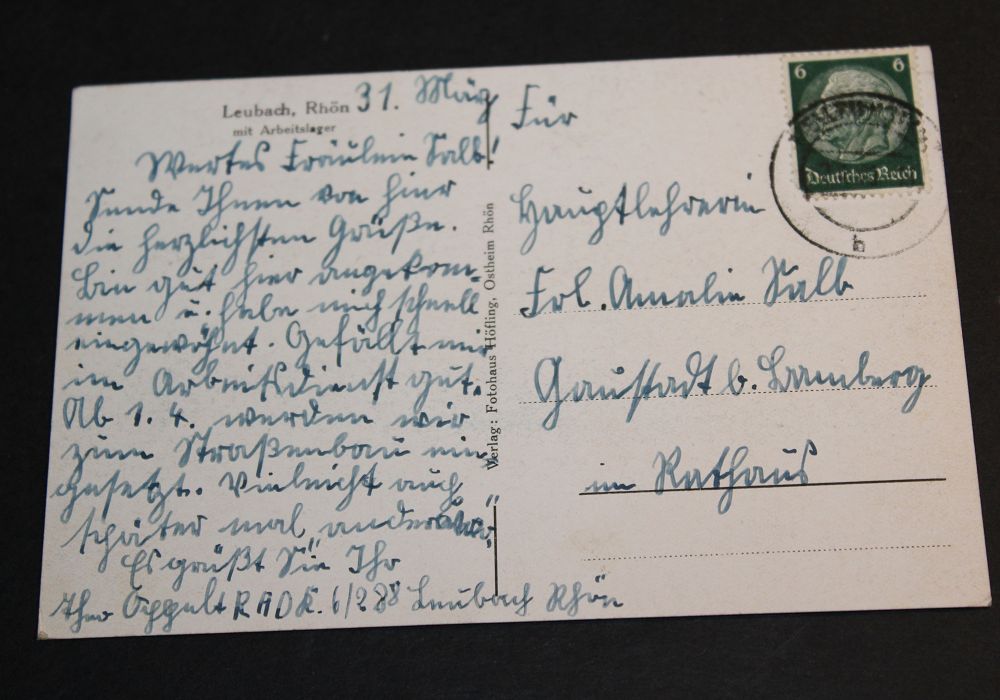 Leubach, Rhön 31. März
mit Arbeitslager
Wertes Fräulein Salb!
Sende Ihnen von hier
die herzlichsten Grüße.
Bin gut hier angekom-
men u. habe mich schnell
eingewöhnt. Gefällt mir
im Arbeitsdienst gut.
Ab 1. 4. werden wir
zum Straßenbau ein
gesetzt. Vielleicht auch
später mal „anderswo“.
Es grüßt Sie Ihr
Theo Appelt R A D K. 6/288 Leubach Rhön
Verlag: Fotohaus Höfling, Ostheim Rhön
Für
Hauptlehrerin
Frl. Amalie Salb
Gaustadt b. Bamberg
im Rathaus
6 6
Deutsches Reich
b